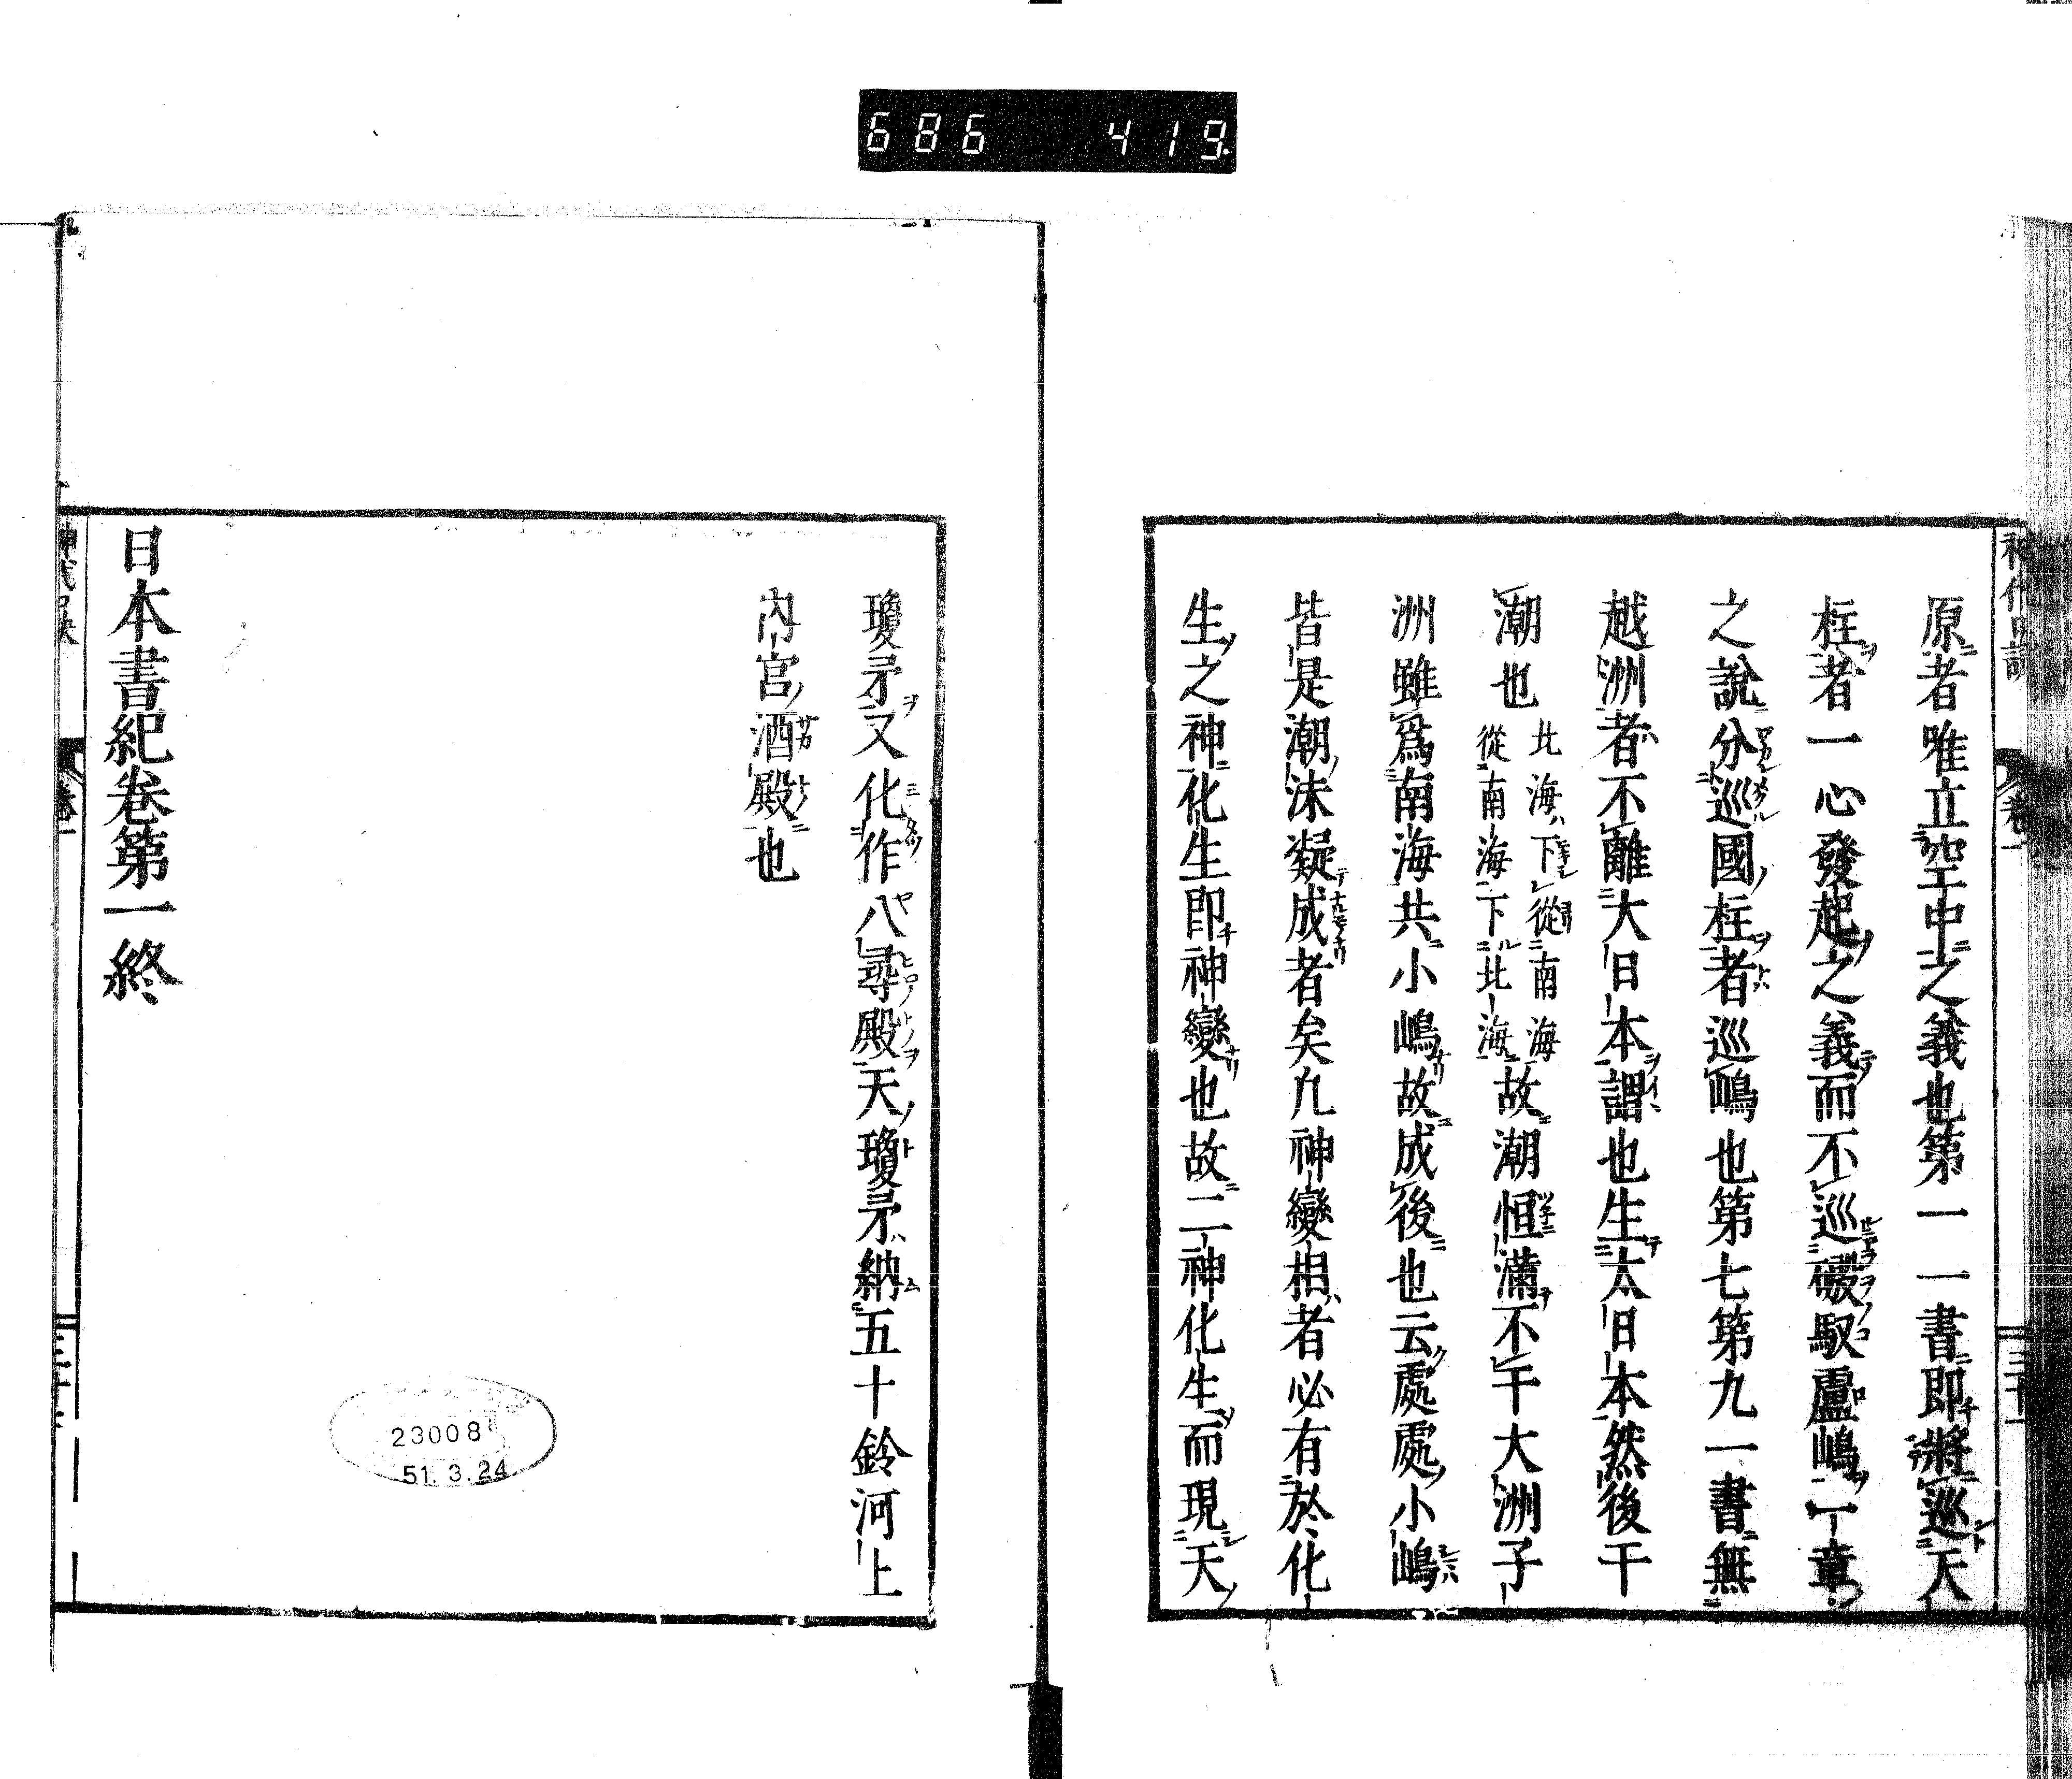 686 419
原者唯立空中之義也第一一書即將巡天
柱者一心發起之義而不巡磤馭盧嶋一章
之說分巡國柱者巡嶋也第七第九一書無
越洲者不離大日本謂也生大日本然後干
潮也北海下從南海從南海下北海故潮恒滿不干大洲子
洲雖爲南海共小嶋故成後也云處處小嶋
皆是潮沫凝成者矣凡神變相者必有於化
生之神化生即神變也故二神化生而現天
瓊矛又化作八尋殿天瓊矛納五十鈴河上
內宮酒殿也
日本書紀卷第一終
23008
51.3.24